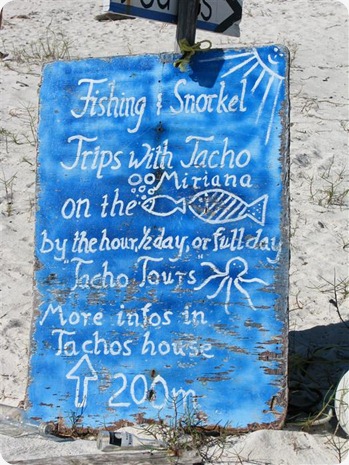 Fishing & Snorkel
Trips with Tacho
Miriana
on the
by the hour, ½ day, or full day
"Tacho Tours"
More infos in
Tachos house
200m